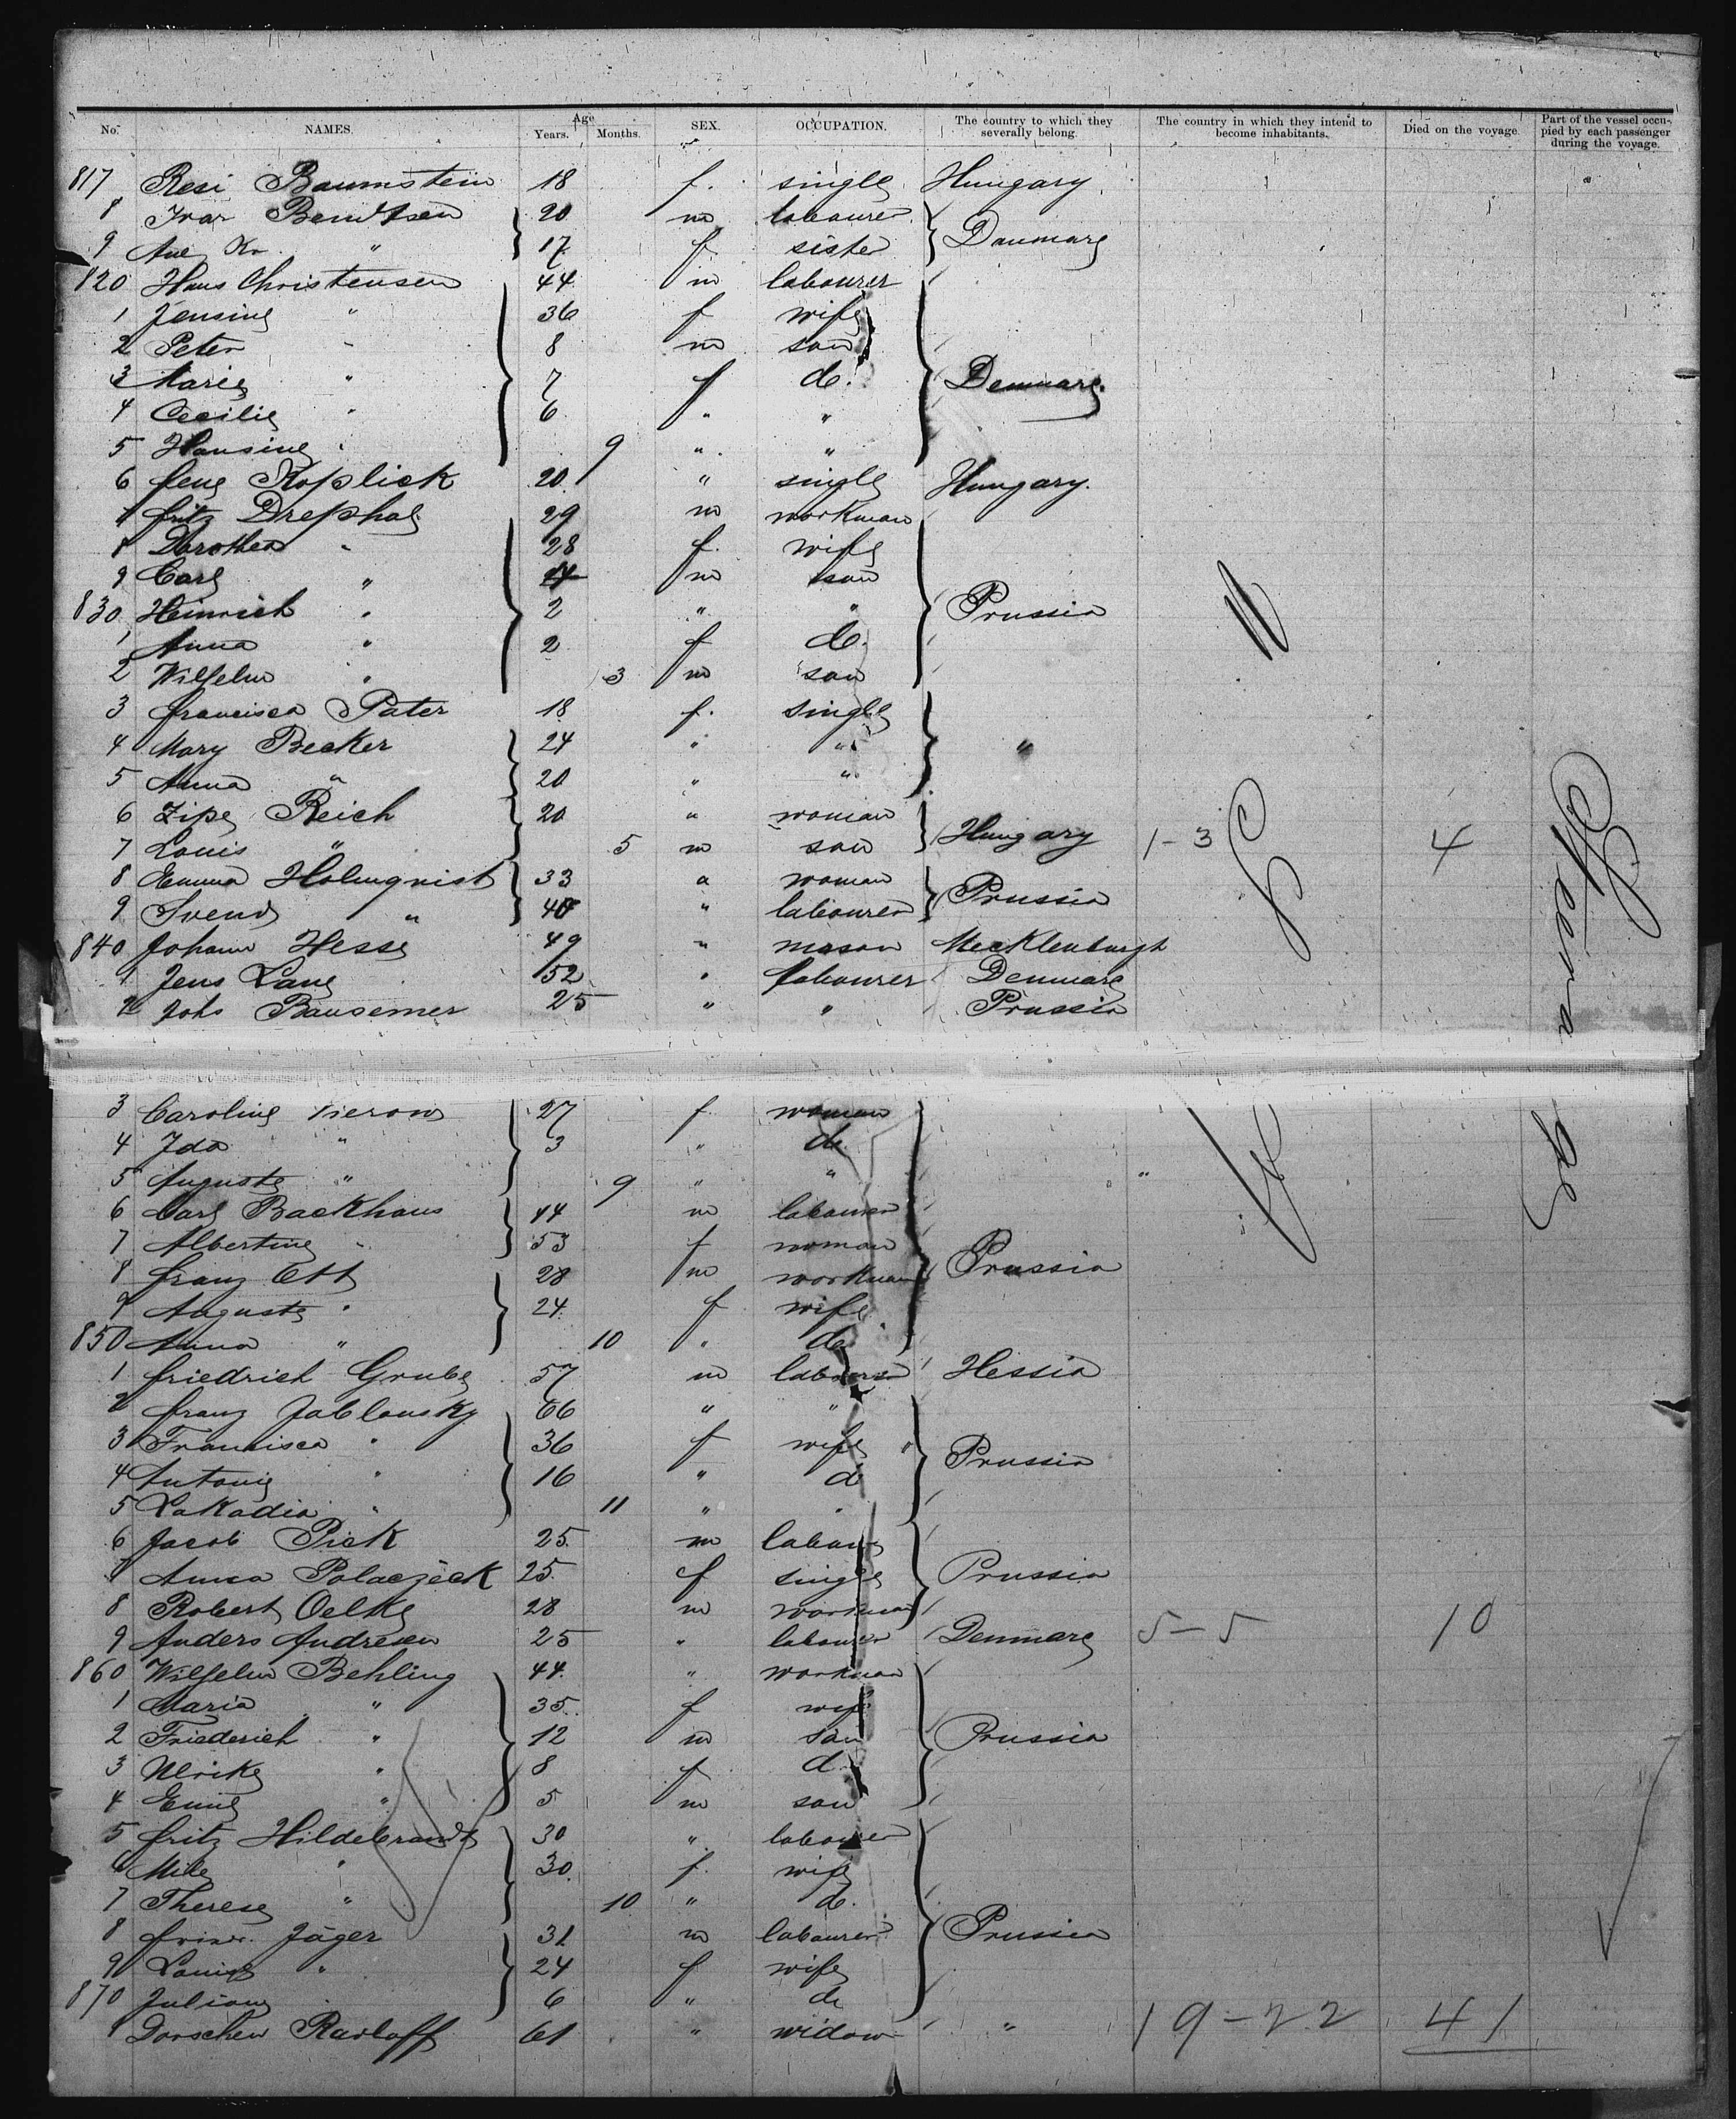 No. NAMES. Age Years. Months. SEX. OCCUPATION. The country to which they severally belong. The country in which they intend to become inhabitants. Died on the voyage. Part of the vessel occupied by each passenger during the voyage.
817 Resi Baumstein 18 f. single Hungary
8 Ivar Bendtsen 20 m labourer
9 Ane Kr. " 17 f sister Danmark
820 Hans Christensen 44 m labourer
1 Jensine " 36 f wife
2 Peter " 8 m son
3 Marie " 7 f do. Denmark
4 Cecilie " 6 " "
5 Hansine " 9 " "
6 Koplick 20 " single Hungary.
7 Fritz Drephal 29 m workman
8 Dorothea " 28 f. wife
9 Carl " 4 m son
830 Heinrich " 2 " " Prussia
1 Anna " 2 f d.
2 Wilhelm " 3 m son
3 Francisca Pater 18 f. single
4 Mary Becker 24 " " "
5 Anna " 20 " "
6 Zipe Reich 20 " woman
7 Louis " 5 m son Hungary 1-3 4
8 Emma Holmqvist 33 woman
9 Svend " 40 " labourer Prussia
840 Johann Hesse 49 " mason Mecklenburgh
1 Jens Lang 52 " labourer Denmark
2 Johs Bausemer 25 " " Prussia
3 Caroline 27 f woman
4 Ida " 3 " d.
5 Auguste " 9 " " "
6 Carl Backhaus 44 m labourer
7 Albertine " 53 f woman Prussia
8 Franz Ott 28 m workman
9 Auguste " 24 f wife
850 Anna " 10 " d.
1 Friedrich Grube 57 m labourer Hessia
2 Franz Jablonsky 66 " "
3 Francisca " 36 f wife Prussia
4 Antonie " 16 " d
5 Lakadia " 11 " "
6 Jacob Pick 25 m labourer
7 Anna Polaczeck 25 f single Prussia
8 Robert Oelke 28 m workman
9 Anders Andresen 25 " labourer Denmark 5-5 10
860 Wilhelm Behling 44 " workman
1 Maria " 35 f wife
2 Friederich " 12 m son Prussia
3 Ulrike " 8 f d
4 Emil " 5 m son
5 Fritz Hildebrandt 30 " labourer
6 " 30 f. wife
7 Therese " 10 " d.
8 Jäger 31 m labourer Prussia
9 Louise " 24 f wife
870 Juliane " 6 " d
1 Dorschen Radloff 61 " widow " 19-22 41